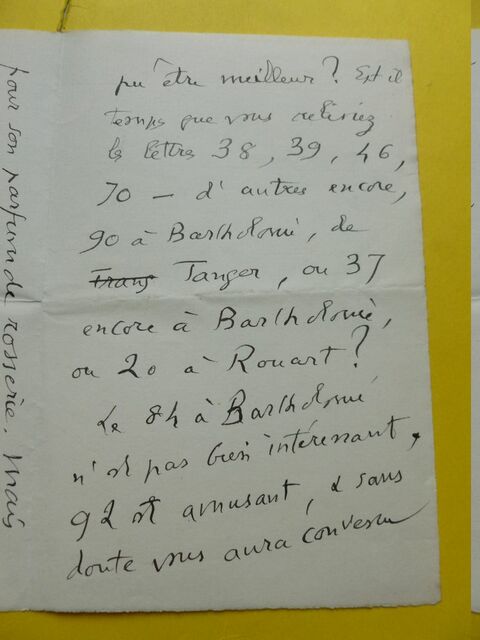 pu être meilleur? Est il
temps que vous relisiez
les lettres 38, 39, 46,
70 — d'autres encore,
90 à Bartholomé, de
Trans Tanger, ou 37
encore à Bartholomé,
ou 20 à Rouart?
Le 84 à Bartholomé
n'est pas bien intéressant,
92 est amusant, & sans
doute vous aura convenu
pour son parfum de rosserie. Mais